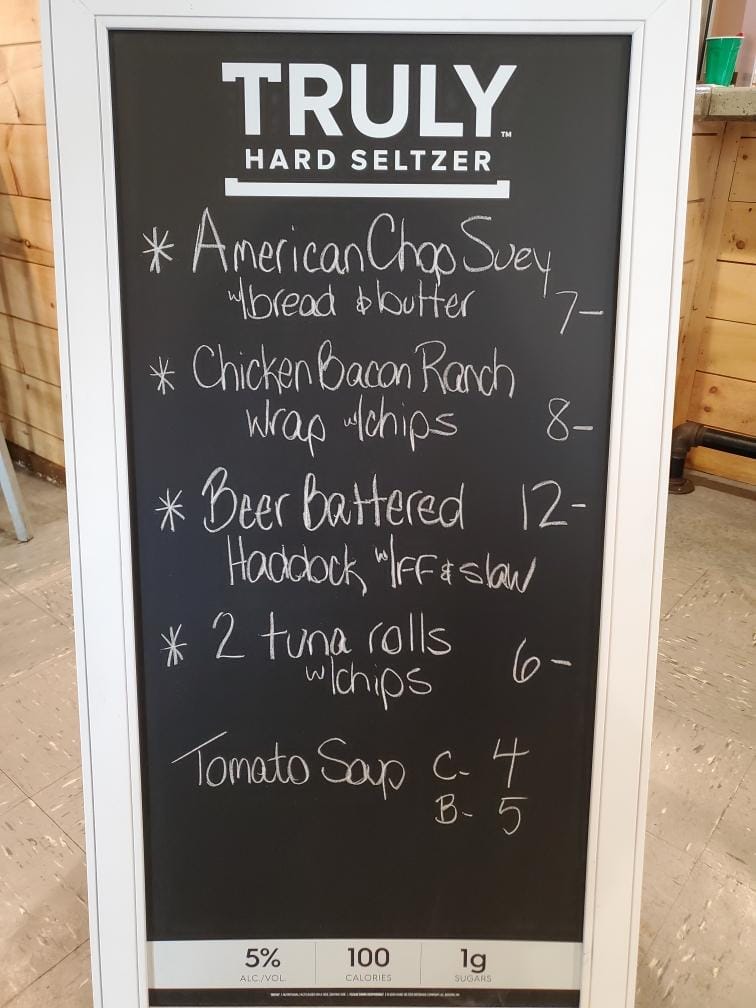 TRULY™
HARD SELTZER
* American Chop Suey
w/bread & butter 7-
* Chicken Bacon Ranch
wrap w/chips 8-
* Beer Battered 12-
Haddock w/FF & slaw
* 2 tuna rolls
w/chips 6-
Tomato Soup C- 4
B- 5
5% 100 1g
ALC./VOL. CALORIES SUGARS